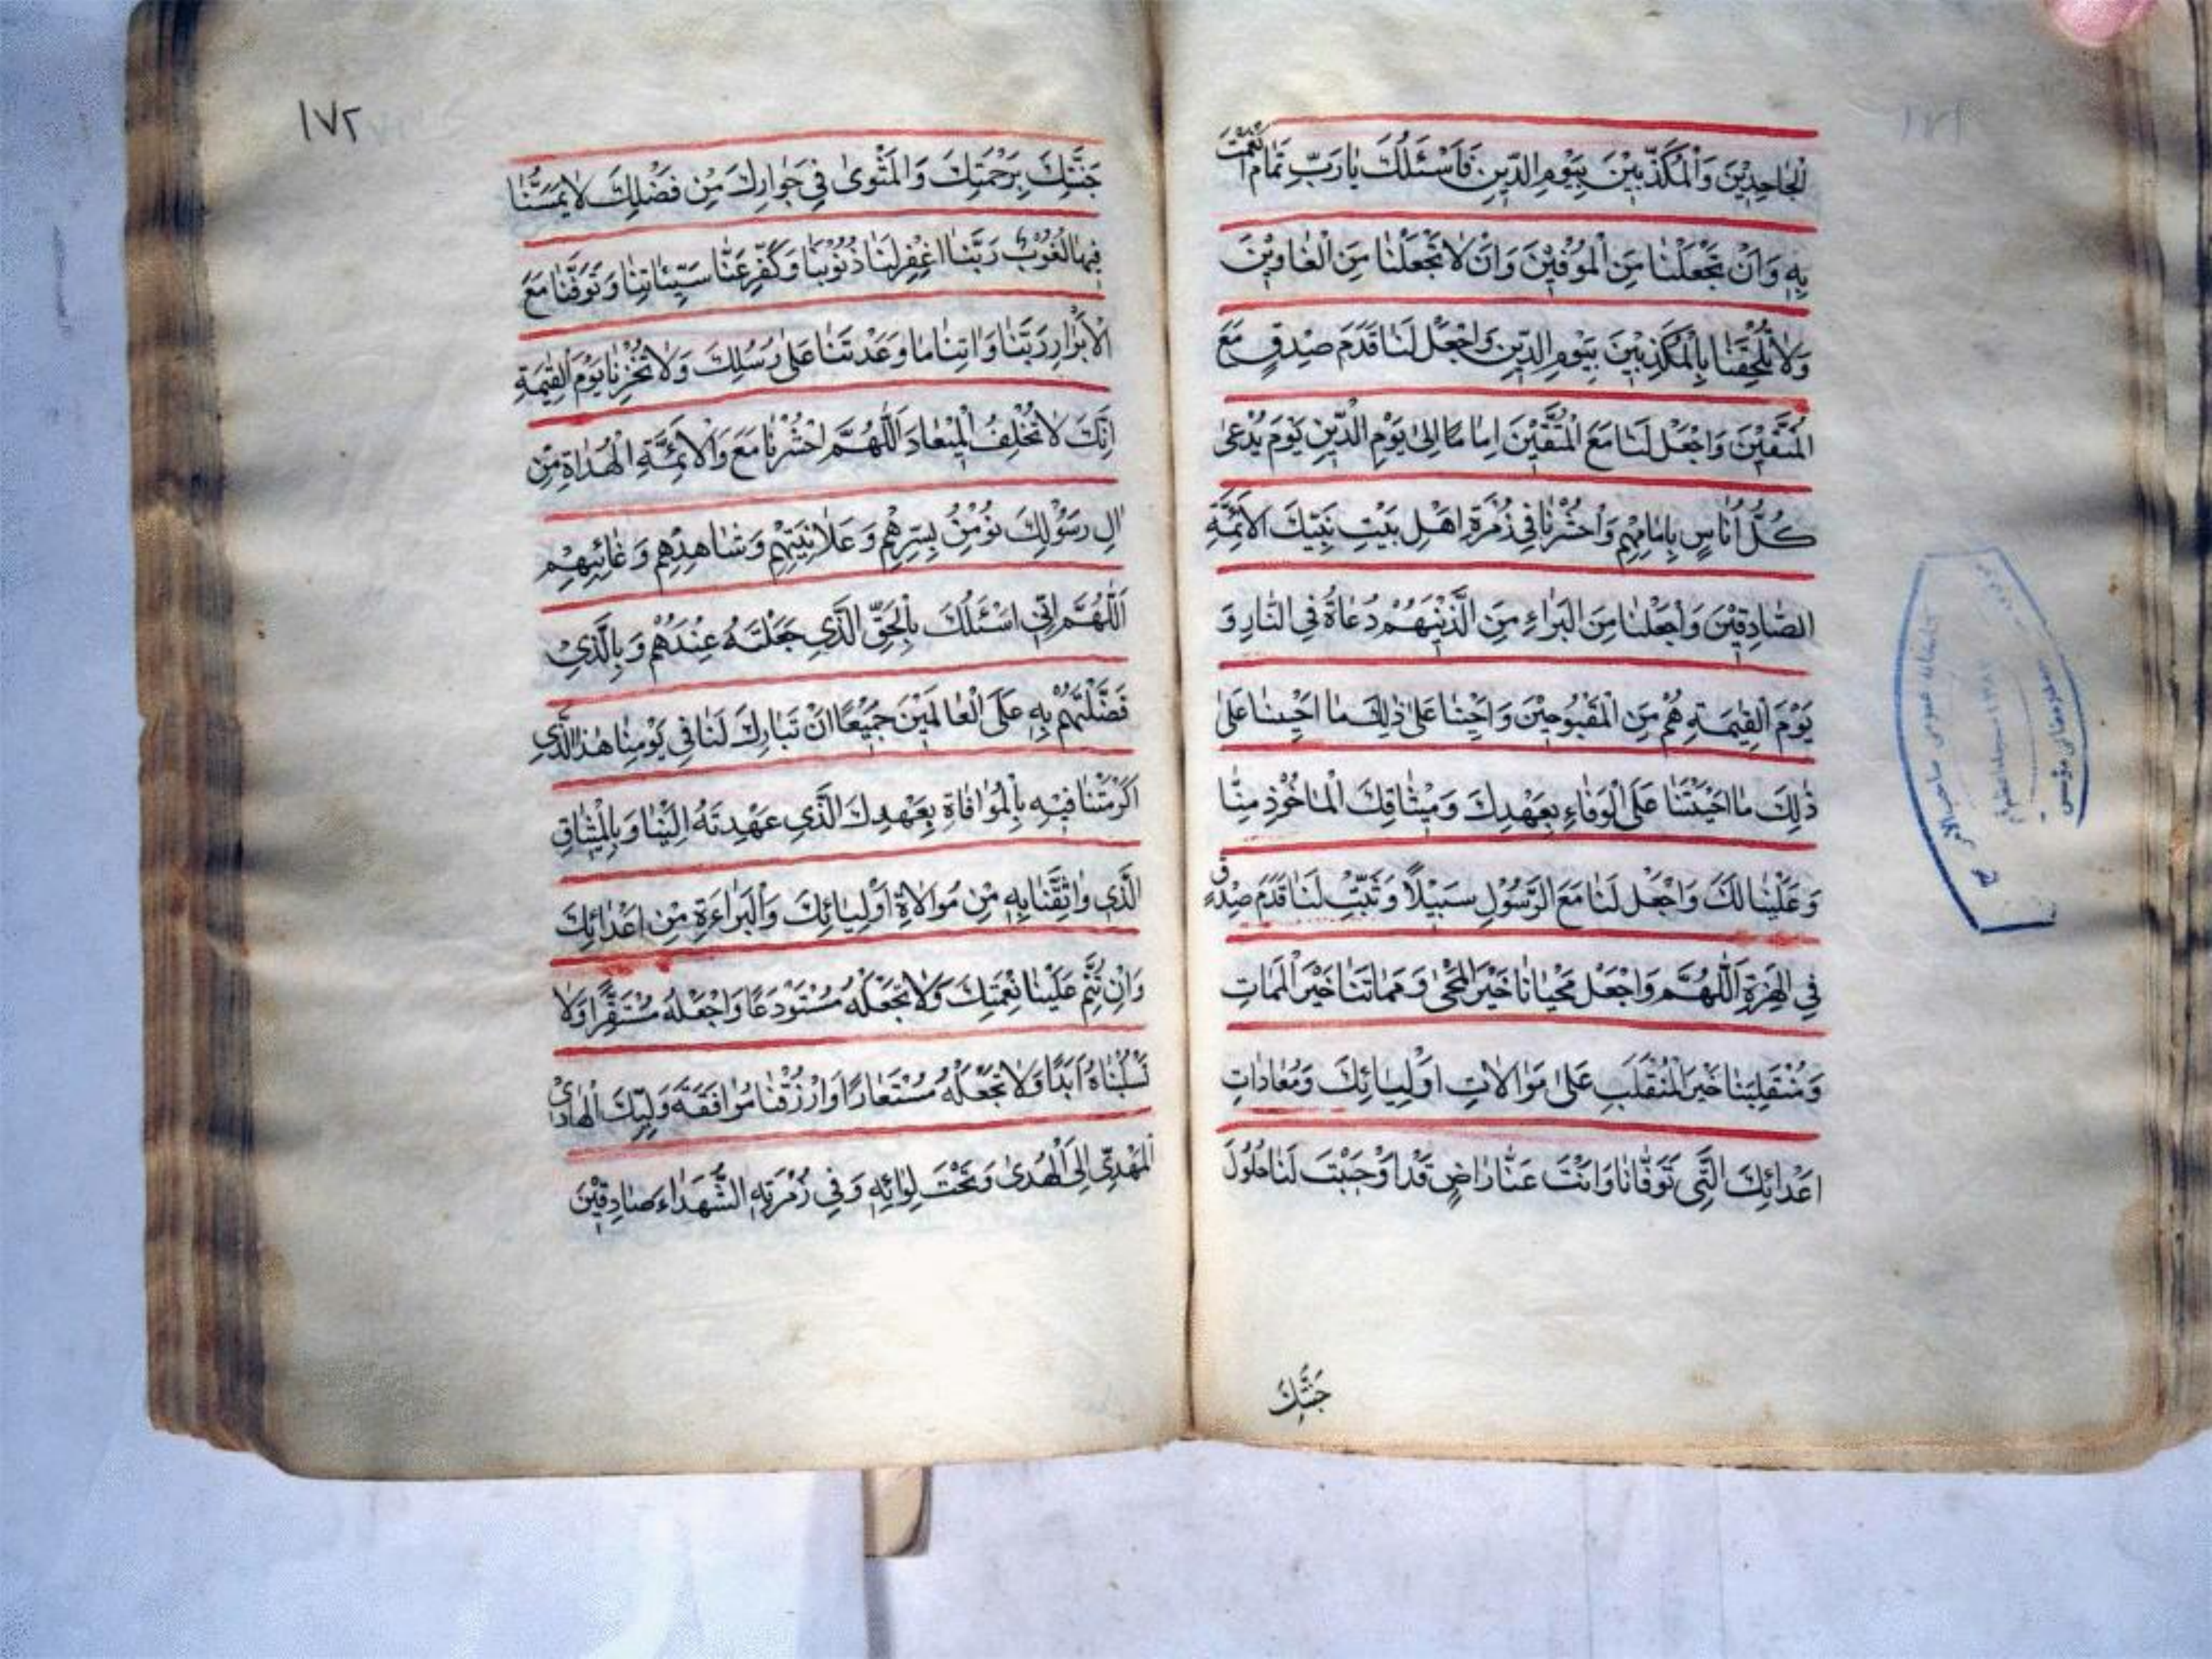 الْجَاحِدِيْنَ وَالْمُكَذِّبِيْنَ بِيَوْمِ الدِّيْنِ فَاَسْئَلُكَ يَارَبِّ تَمَامَ
بِهِ وَاَنْ تَجْعَلْنَا مِنَ الْمُوْفِيْنَ وَاَنْ لَا تَجْعَلْنَا مِنَ الْغَاوِيْنَ
وَلَا تُلْحِقْنَا بِالْمُكَذِّبِيْنَ بِيَوْمِ الدِّيْنِ وَاجْعَلْ لَنَا قَدَمَ صِدْقٍ مَعَ
الْمُتَّقِيْنَ وَاجْعَلْ لَنَا مَعَ الْمُتَّقِيْنَ اِمَامًا اِلىٰ يَوْمِ الدِّيْنِ يَوْمَ يُدْعىٰ
كُلُّ اُنَاسٍ بِاِمَامِهِمْ وَاحْشُرْنَا فِي زُمْرَةِ اَهْلِ بَيْتِ نَبِيِّكَ الْاَئِمَّةِ
الصَّادِقِيْنَ وَاجْعَلْنَا مِنَ الْبَرَاءِ مِنَ الَّذِيْنَ هُمْ دُعَاةٌ فِي النَّارِ وَ
يَوْمَ الْقِيٰمَةِ هُمْ مِنَ الْمَقْبُوحِيْنَ وَاَحْيِنَا عَلىٰ ذٰلِكَ مَا اَحْيَيْتَنَا عَلىٰ
ذٰلِكَ مَا اَحْيَيْتَنَا عَلَى الْوَفَاءِ بِعَهْدِكَ وَمِيْثَاقِكَ الْمَاْخُوْذِ مِنَّا
وَعَلَيْنَا لَكَ وَاجْعَلْ لَنَا مَعَ الرَّسُوْلِ سَبِيْلًا وَثَبِّتْ لَنَا قَدَمَ صِدْقٍ
فِي الْهِجْرَةِ اَللّٰهُمَّ وَاجْعَلْ مَحْيَانَا خَيْرَ الْمَحْيٰى وَمَمَاتَنَا خَيْرَ الْمَمَاتِ
وَمُنْقَلَبَنَا خَيْرَ الْمُنْقَلَبِ عَلىٰ مَوَالَاتِ اَوْلِيَائِكَ وَمُعَادَاتِ
اَعْدَائِكَ الَّتِي تَوَفَّانَا وَاَنْتَ عَنَّا رَاضٍ قَدْ اَوْجَبْتَ لَنَا حُلُوْلَ
جَنَّتِكَ
١٧٢
جَنَّتِكَ بِرَحْمَتِكَ وَالْمَثْوىٰ فِي جَوَارِكَ مِنْ فَضْلِكَ لَا يَمَسُّنَا
فِيهَا لُغُوْبٌ رَبَّنَا اغْفِرْ لَنَا ذُنُوْبَنَا وَكَفِّرْ عَنَّا سَيِّئَاتِنَا وَتَوَفَّنَا مَعَ
الْاَبْرَارِ رَبَّنَا وَاٰتِنَا مَا وَعَدْتَنَا عَلىٰ رُسُلِكَ وَلَا تُخْزِنَا يَوْمَ الْقِيٰمَةِ
اِنَّكَ لَا تُخْلِفُ الْمِيْعَادَ اَللّٰهُمَّ احْشُرْنَا مَعَ وَالْاَئِمَّةِ الْهُدَاةِ مِنْ
اٰلِ رَسُوْلِكَ نُؤْمِنُ بِسِرِّهِمْ وَعَلَانِيَتِهِمْ وَشَاهِدِهِمْ وَغَائِبِهِمْ
اَللّٰهُمَّ اِنِّي اَسْئَلُكَ بِالْحَقِّ الَّذِي جَعَلْتَهُ عِنْدَهُمْ وَبِالَّذِيْ
فَضَّلْتَهُمْ بِهِ عَلَى الْعَالَمِيْنَ جَمِيْعًا اَنْ تُبَارِكَ لَنَا فِي يَوْمِنَا هٰذَا الَّذِي
اَكْرَمْتَنَا فِيْهِ بِالْمُوَافَاةِ بِعَهْدِكَ الَّذِي عَهِدْتَهُ اِلَيْنَا وَبِالْمِيْثَاقِ
الَّذِي وَاثَقْتَنَا بِهِ مِنْ مَوَالَاةِ اَوْلِيَائِكَ وَالْبَرَاءَةِ مِنْ اَعْدَائِكَ
وَاَنْ تُتِمَّ عَلَيْنَا نِعْمَتَكَ وَلَا تَجْعَلْهُ مُسْتَوْدَعًا وَاجْعَلْهُ مُسْتَقَرًّا وَلَا
تَسْلُبْنَاهُ اَبَدًا وَلَا تَجْعَلْهُ مُسْتَعَارًا وَارْزُقْنَا مُرَافَقَةَ وَلِيِّكَ الْهَادِيْ
الْمَهْدِيِّ اِلَى الْهُدىٰ وَتَحْتَ لِوَائِهِ وَفِي زُمْرَتِهِ الشُّهَدَاءَ صَادِقِيْنَ